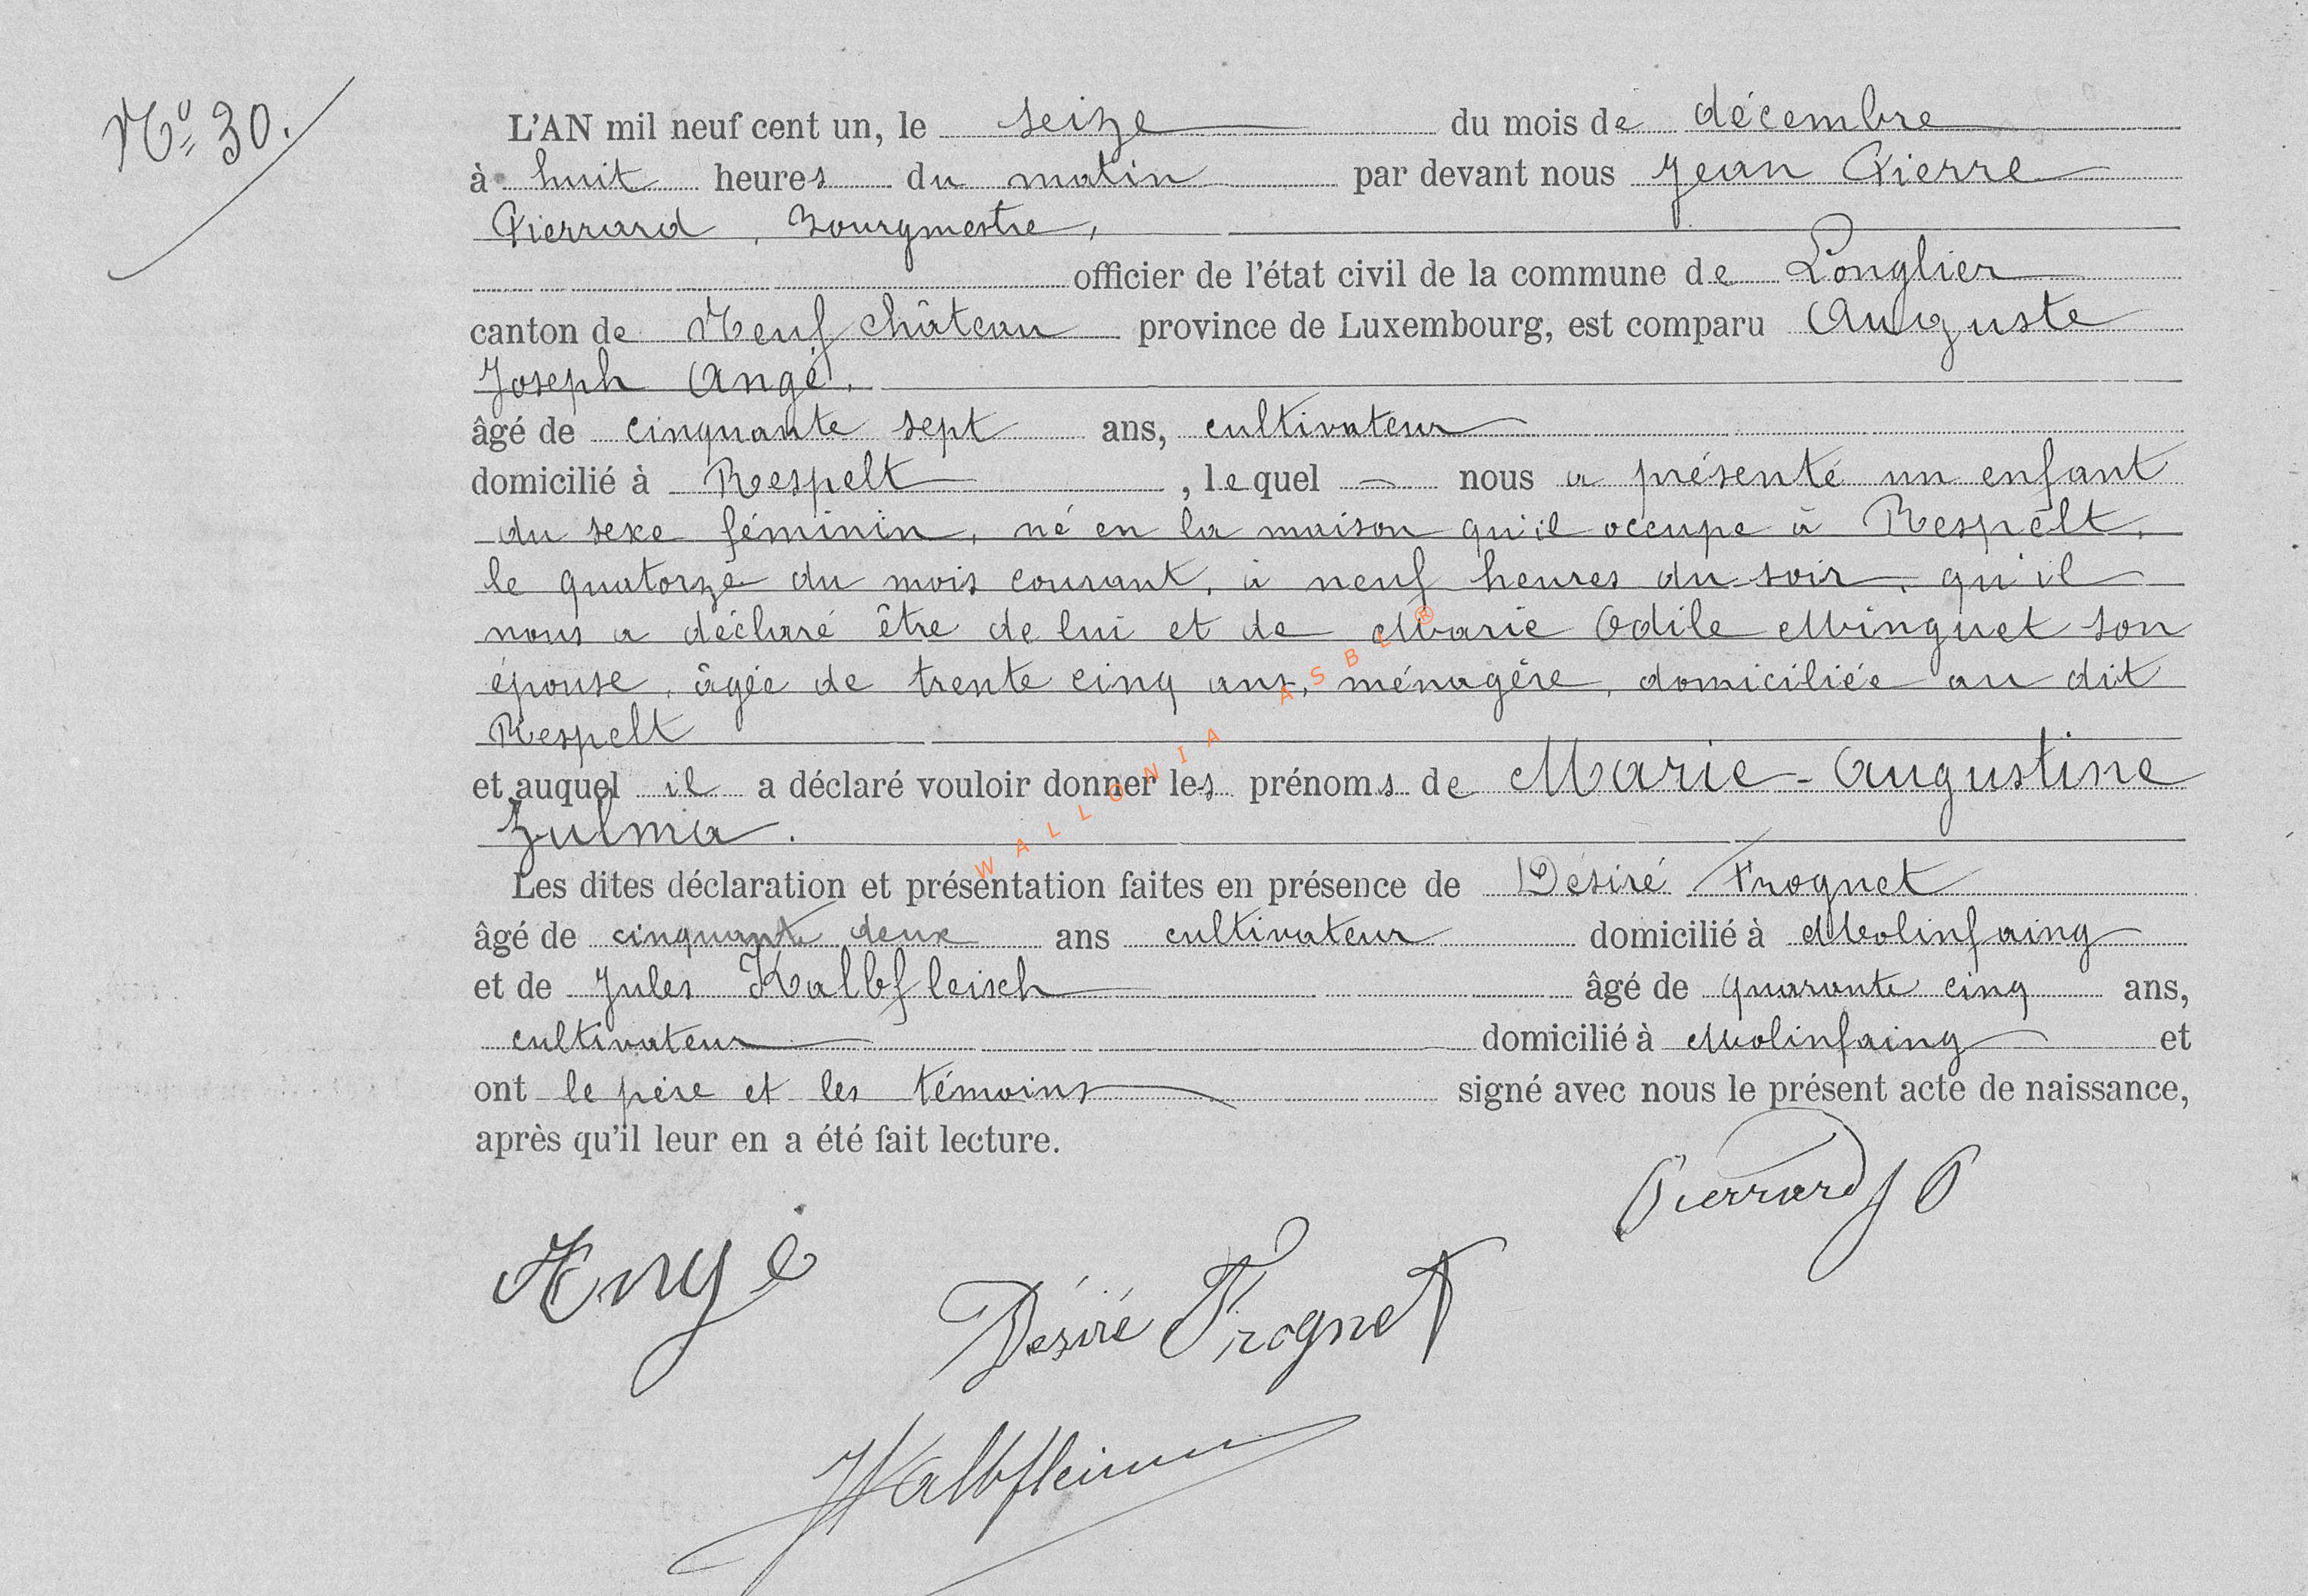 Nº 30.
L'AN mil neuf cent un, le seize du mois de décembre
à huit heures du matin par devant nous Jean Pierre
Pierrard, Bourgmestre,
officier de l'état civil de la commune de Longlier
canton de Neufchâteau province de Luxembourg, est comparu Auguste
Joseph Angé.
âgé de cinquante sept ans, cultivateur
domicilié à Respelt, lequel nous a présenté un enfant
du sexe féminin, né en la maison qu'il occupe à Respelt,
le quatorze du mois courant, à neuf heures du soir, qu'il
nous a déclaré être de lui et de Marie Odile Minguet son
épouse, âgée de trente cinq ans, ménagère, domiciliée au dit
Respelt
et auquel il a déclaré vouloir donner les prénoms de Marie-Augustine
Zulma.
Les dites déclaration et présentation faites en présence de Désiré Frognet
âgé de cinquante deux ans cultivateur domicilié à Molinfaing
et de Jules Kalbfleisch âgé de quarante cinq ans,
cultivateur domicilié à Molinfaing et
ont le père et les témoins signé avec nous le présent acte de naissance,
après qu'il leur en a été fait lecture.
Pierrard J P
Angé
Désiré Frognet
WALLONIA ASBL®